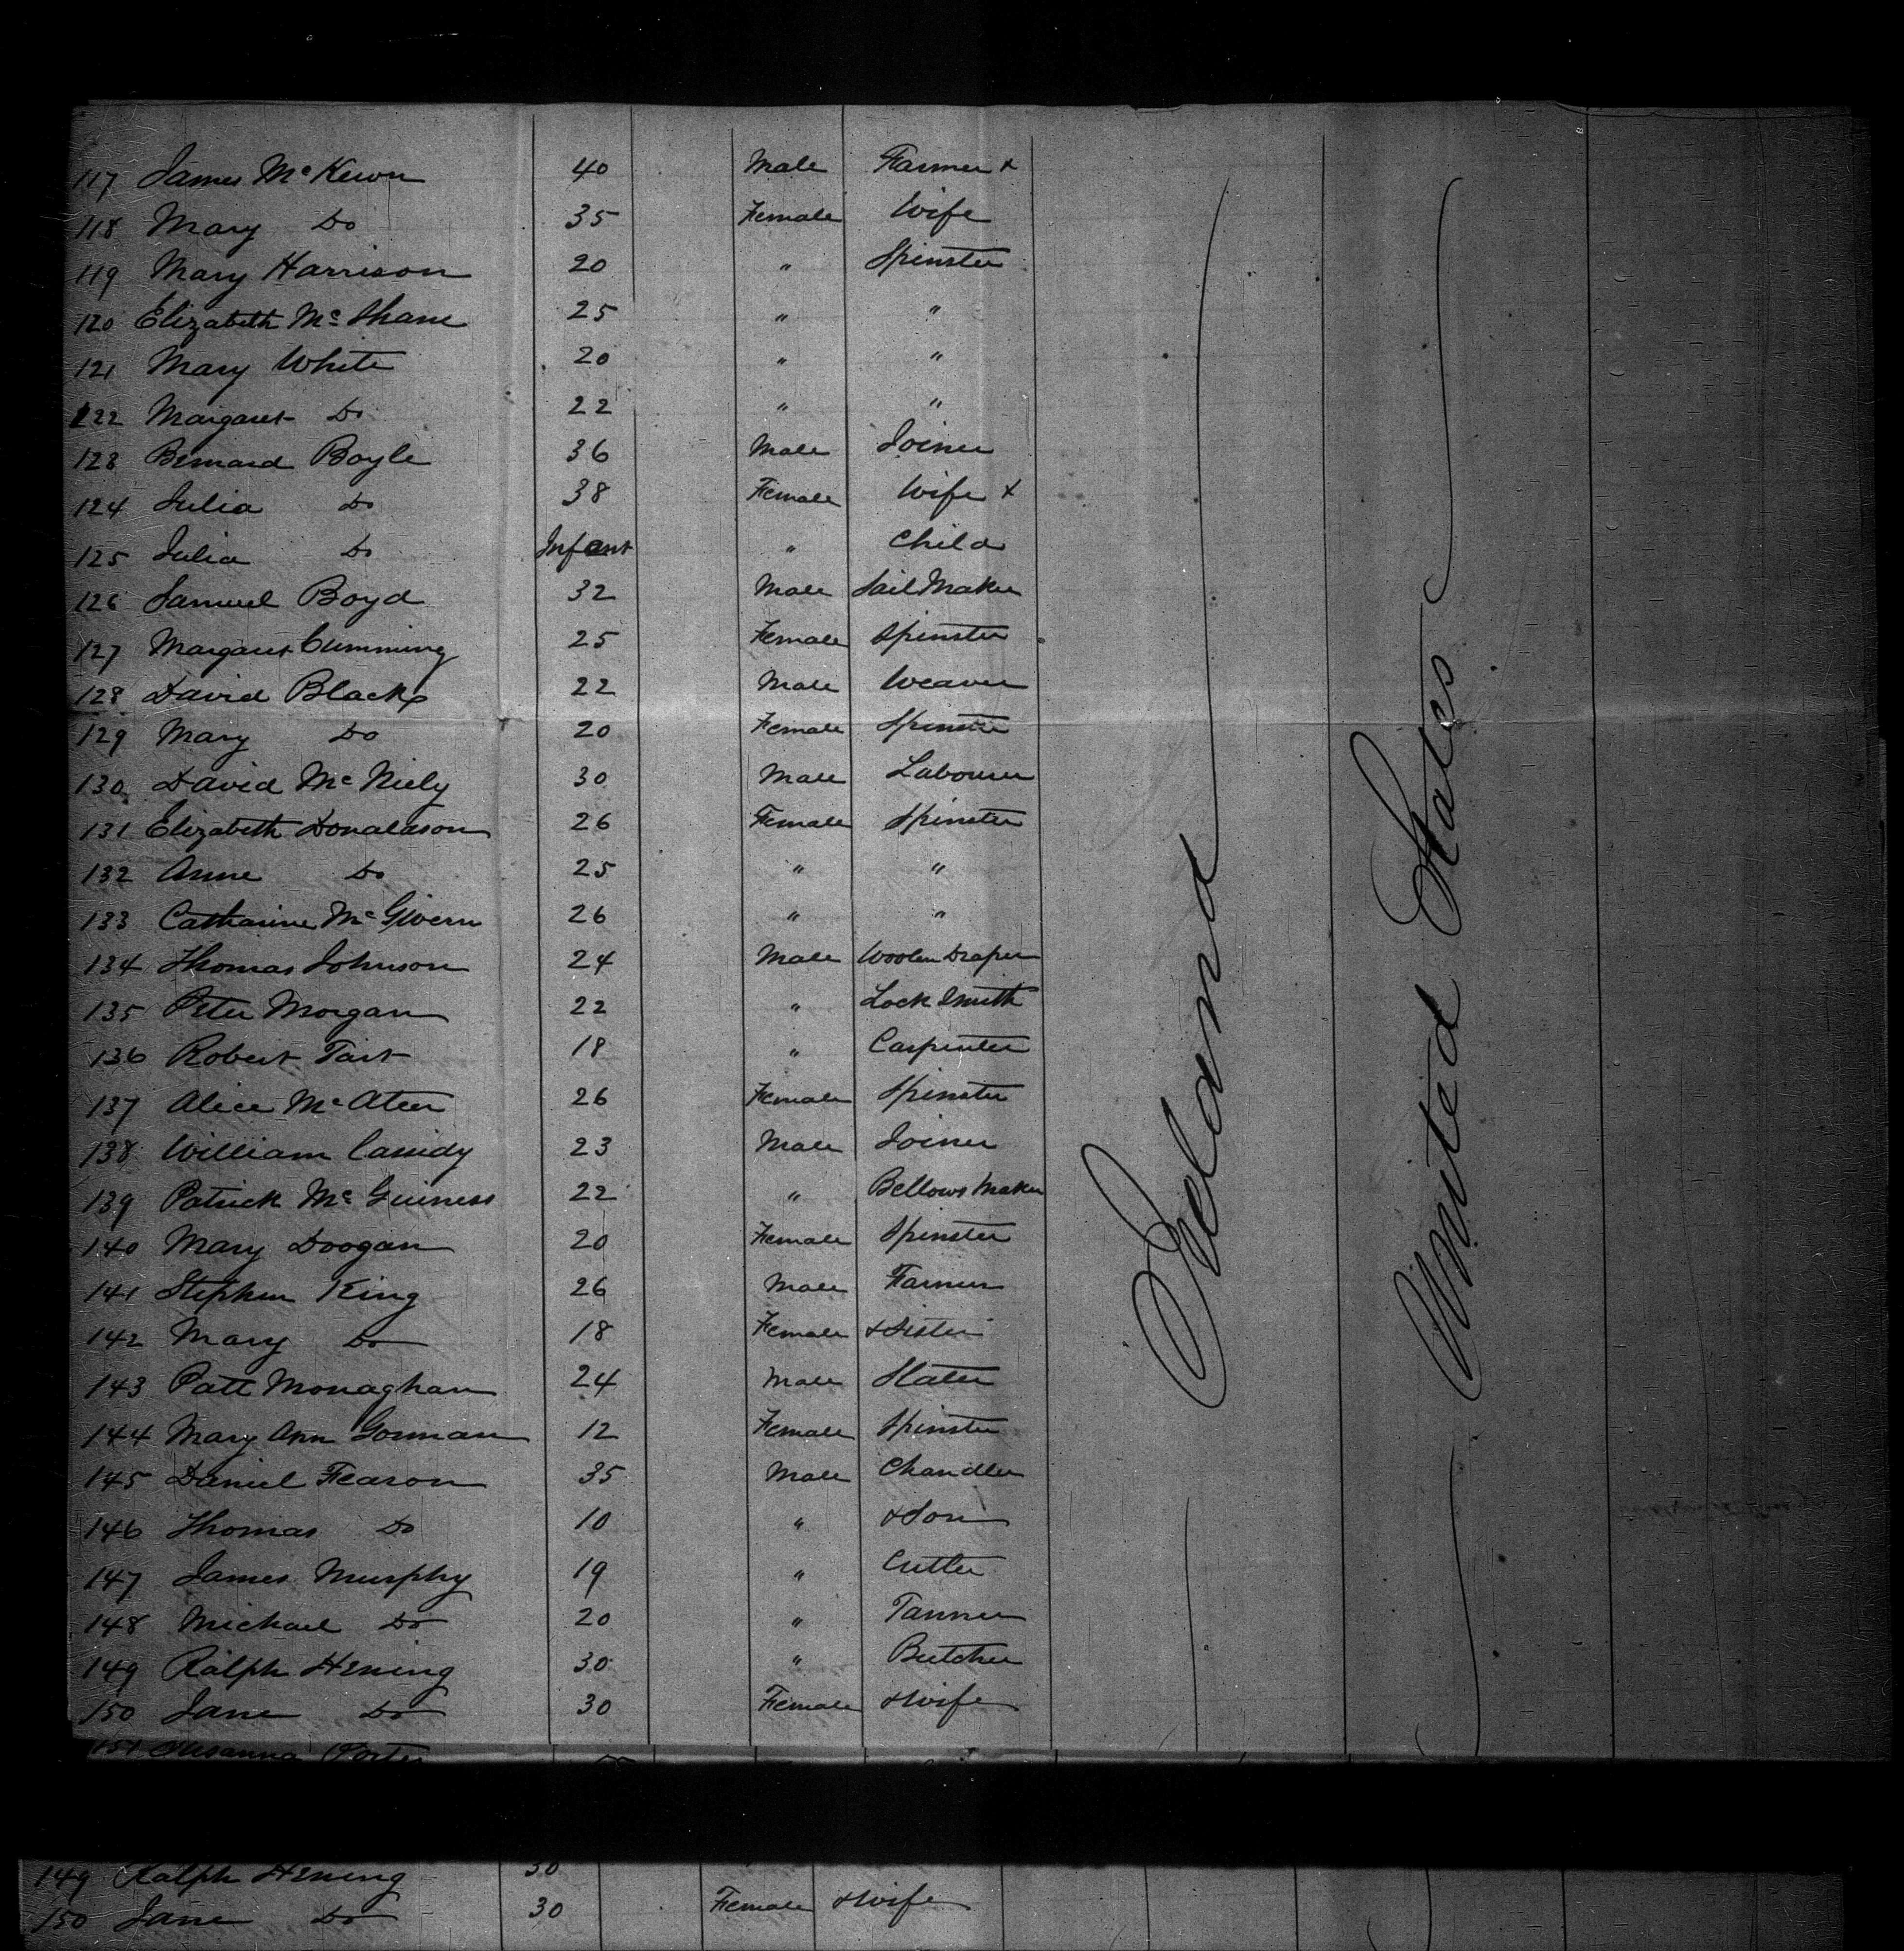 117 James McKeown 40 Male Farmer x
118 Mary Do 35 Female Wife
119 Mary Harrison 20 " Spinster
120 Elizabeth McShane 25 " "
121 Mary White 20 " "
122 Margaret Do 22 " "
123 Bernard Boyle 36 Male Joiner
124 Julia Do 38 Female Wife x
125 Julia Do Infant " Child
126 Samuel Boyd 32 Male Sail Maker
127 Margaret Cumming 25 Female Spinster
128 David Black 22 Male Weaver
129 Mary Do 20 Female Spinster
130 David McNiely 30 Male Labourer
131 Elizabeth Donaldson 26 Female Spinster
132 Anne Do 25 " "
133 Catharine McGivern 26 " "
134 Thomas Johnson 24 Male Woolen Draper
135 Peter Morgan 22 " Lock Smith
136 Robert Tait 18 " Carpenter
137 Alice McAteer 26 Female Spinster
138 William Cassidy 23 Male Joiner
139 Patrick McGuiness 22 " Bellows Maker
140 Mary Doogan 20 Female Spinster
141 Stephen King 26 Male Farmer
142 Mary Do 18 Female & Sister
143 Patt Monaghan 24 Male Slater
144 Mary Ann Gorman 12 Female Spinster
145 Daniel Fearon 35 Male Chandler
146 Thomas Do 10 " & Son
147 James Murphy 19 " Cutler
148 Michael Do 20 " Tanner
149 Ralph Hening 30 " Butcher
150 Jane Do 30 Female & Wife
151 Susanna Porter
Ireland
United States
149 Ralph Hening 30
150 Jane Do 30 Female & Wife